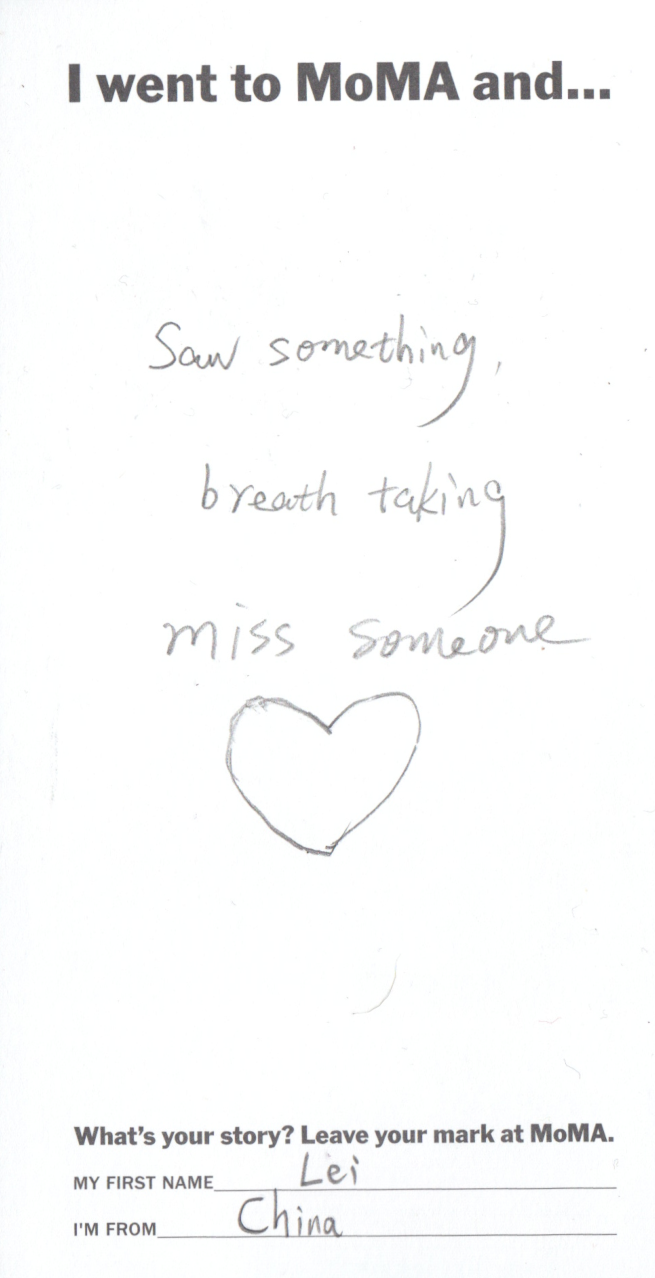 I went to MoMA and...
Saw something,
breath taking
miss someone
What's your story? Leave your mark at MoMA.
MY FIRST NAME Lei
I'M FROM China